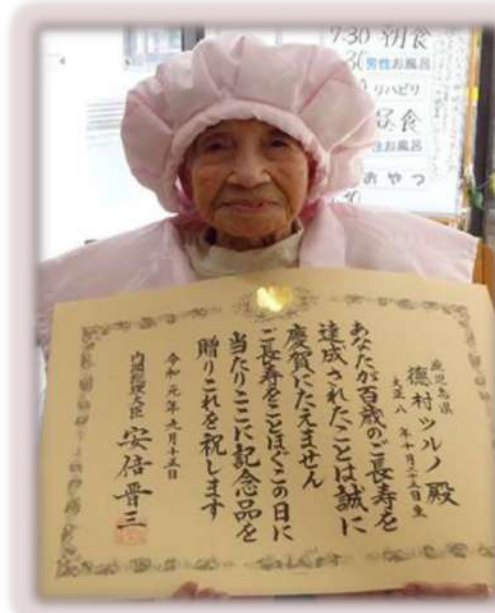 7:30 朝食
男性お風呂
リハビリ
昼食
お風呂
おやつ
鹿児島県
德村ツルノ殿
大正八年十月二十五日生
あなたが百歳のご長寿を
達成されたことは誠に
慶賀にたえません
ご長寿をことほぐこの日に
当たりここに記念品を
贈りこれを祝します
令和元年九月十五日
内閣総理大臣 安倍晋三